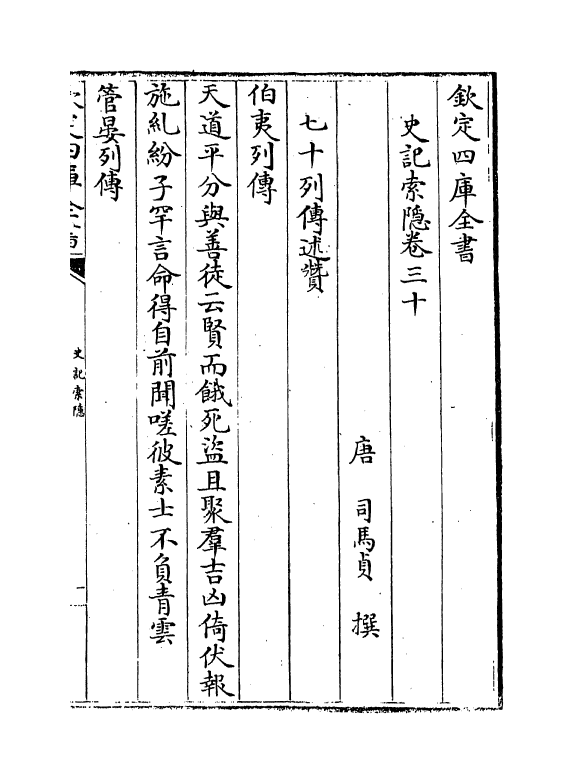 欽定四庫全書
史記索隱卷三十
唐 司馬貞 撰
七十列傳述贊
伯夷列傳
天道平分與善徒云賢而餓死盜且聚羣吉凶倚伏報
施糺紛子罕言命得自前聞嗟彼素士不負青雲
管晏列傳
欽定四庫全書
史記索隱
一